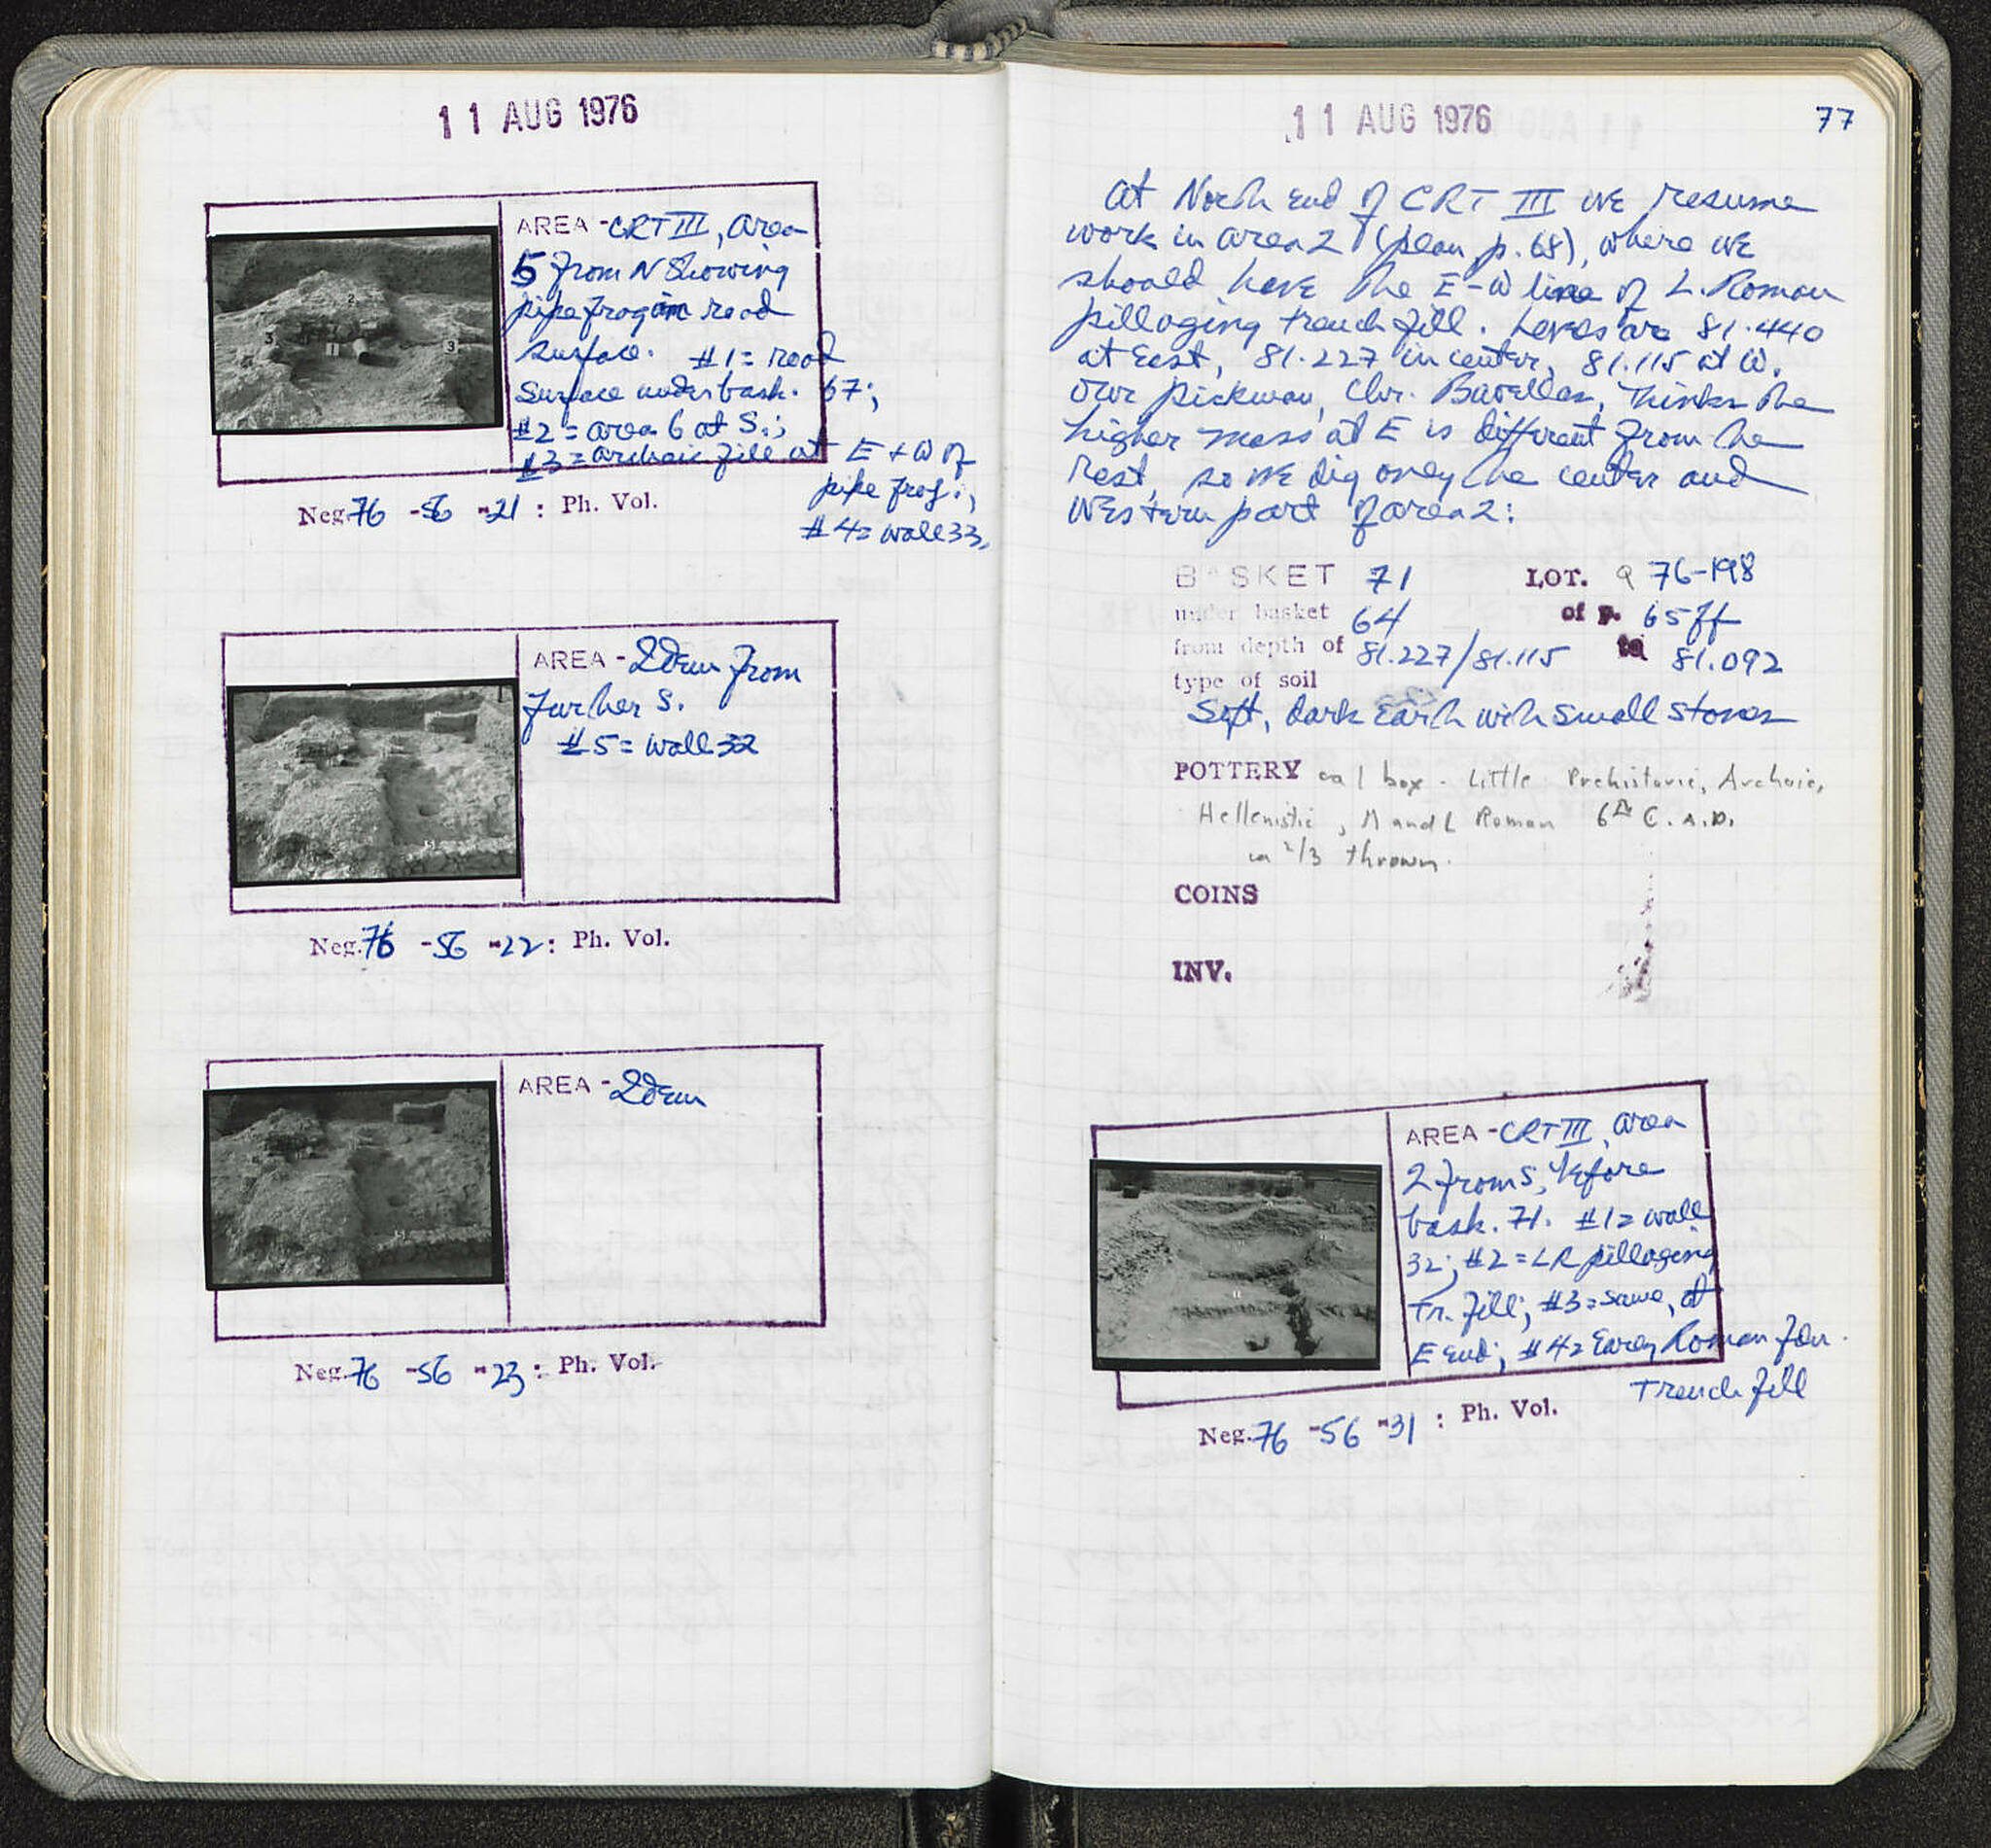 11 AUG 1976
AREA - CRT III, area
5 from N showing
pipe frag in road
surface. #1 = road
surface under bask. 67;
#2 = area 6 at S.;
#3 = archaic fill at E + W of
pipe frag.;
#4 = wall 33.
Neg. 76 -56 -21 : Ph. Vol.
AREA - Idem from
further S.
#5 = wall 32
Neg. 76 -56 -22 : Ph. Vol.
AREA - Idem
Neg. 76 -56 -23 : Ph. Vol.
11 AUG 1976
77
At North end of CRT III we resume
work in area 2 (plan p. 68), where we
should have the E-W line of L. Roman
pillaging trench fill. Levels are 81.440
at East, 81.227 in center, 81.115 at W.
Our pickman, Chr. thinks the
higher mass at E is different from the
rest, so we dig only the center and
Western part of area 2:
BASKET 71 LOT. 76-198
under basket 64 of p. 65ff
from depth of 81.227/81.115 to 81.092
type of soil
Soft, dark earth with small stones
POTTERY ca 1 box - Little Prehistoric, Archaic,
Hellenistic, M and L Roman 6th C. A.D.
ca 2/3 thrown.
COINS
INV.
AREA - CRT III, area
2 from S, before
bask. 71. #1 = wall
32; #2 = LR pillaging
Tr. fill; #3 = same, at
E end; #4 = Early Roman fdn.
Trench fill
Neg. 76 -56 -31 : Ph. Vol.